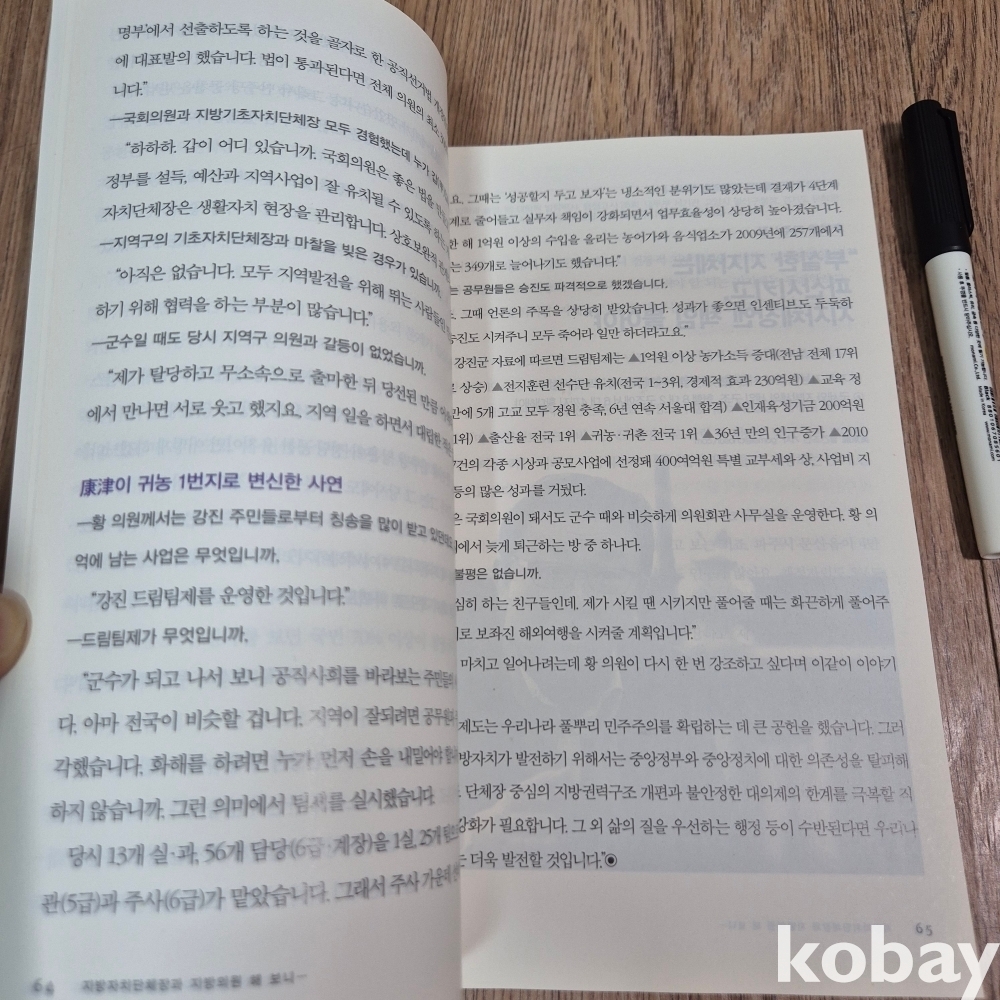 명부'에서 선출하도록 하는 것을 골자로 한 공직선거법
에 대표발의 했습니다. 법이 통과된다면 전체 의원의 최소
니다."
―국회의원과 지방기초자치단체장 모두 경험했는데 누가
"하하하. 갑이 어디 있습니까. 국회의원은 좋은 법을
정부를 설득, 예산과 지역사업이 잘 유치될 수 있도록 하는
자치단체장은 생활자치 현장을 관리합니다. 상호보완적
―지역구의 기초자치단체장과 마찰을 빚은 경우가 있습니까.
"아직은 없습니다. 모두 지역발전을 위해 뛰는 사람들인
하기 위해 협력을 하는 부분이 많습니다."
―군수일 때도 당시 지역구 의원과 갈등이 없었습니까.
"제가 탈당하고 무소속으로 출마한 뒤 당선된 만큼
에서 만나면 서로 웃고 했지요. 지역 일을 하면서 대립한
康津이 귀농 1번지로 변신한 사연
―황 의원께서는 강진 주민들로부터 칭송을 많이 받고
억에 남는 사업은 무엇입니까.
"강진 드림팀제를 운영한 것입니다."
―드림팀제가 무엇입니까.
"군수가 되고 나서 보니 공직사회를 바라보는 주민들의
다. 아마 전국이 비슷할 겁니다. 지역이 잘되려면
각했습니다. 화해를 하려면 누가 먼저 손을 내밀어야
하지 않습니까. 그런 의미에서 팀제를 실시했습니다.
당시 13개 실·과, 56개 담당(6급·계장)을 1실, 25개
관(5급)과 주사(6급)가 맡았습니다. 그래서 주사 가운데
64 지방자치단체장과 지방의원 해 보니―
요. 그때는 '성공할지 두고 보자'는 냉소적인 분위기도 많았는데 결재가 4단계
계로 줄어들고 실무자 책임이 강화되면서 업무효율성이 상당히 높아졌습니다.
한 해 1억원 이상의 수입을 올리는 농어가와 음식업소가 2009년에 257개에서
는 349개로 늘어나기도 했습니다."
는 공무원들은 승진도 파격적으로 했겠습니다.
그때 언론의 주목을 상당히 받았습니다. 성과가 좋으면 인센티브도 두둑하
승진도 시켜주니 모두 죽어라 일만 하더라고요."
강진군 자료에 따르면 드림팀제는 ▲1억원 이상 농가소득 증대(전남 전체 17위
로 상승) ▲전지훈련 선수단 유치(전국 1~3위, 경제적 효과 230억원) ▲교육 정
만에 5개 고교 모두 정원 충족, 6년 연속 서울대 합격) ▲인재육성기금 200억원
1위) ▲출산율 전국 1위 ▲귀농·귀촌 전국 1위 ▲36년 만의 인구증가 ▲2010
7건의 각종 시상과 공모사업에 선정돼 400여억원 특별 교부세와 상, 사업비 지
등의 많은 성과를 거뒀다.
은 국회의원이 돼서도 군수 때와 비슷하게 의원회관 사무실을 운영한다. 황 의
에서 늦게 퇴근하는 방 중 하나다.
불평은 없습니까.
심히 하는 친구들인데, 제가 시킬 땐 시키지만 풀어줄 때는 화끈하게 풀어주
로 보좌진 해외여행을 시켜줄 계획입니다."
마치고 일어나려는데 황 의원이 다시 한 번 강조하고 싶다며 이같이 이야기
제도는 우리나라 풀뿌리 민주주의를 확립하는 데 큰 공헌을 했습니다. 그러
방자치가 발전하기 위해서는 중앙정부와 중앙정치에 대한 의존성을 탈피해
단체장 중심의 지방권력구조 개편과 불안정한 대의제의 한계를 극복할 직
강화가 필요합니다. 그 외 삶의 질을 우선하는 행정 등이 수반된다면 우리나
는 더욱 발전할 것입니다."◉
65
kobay